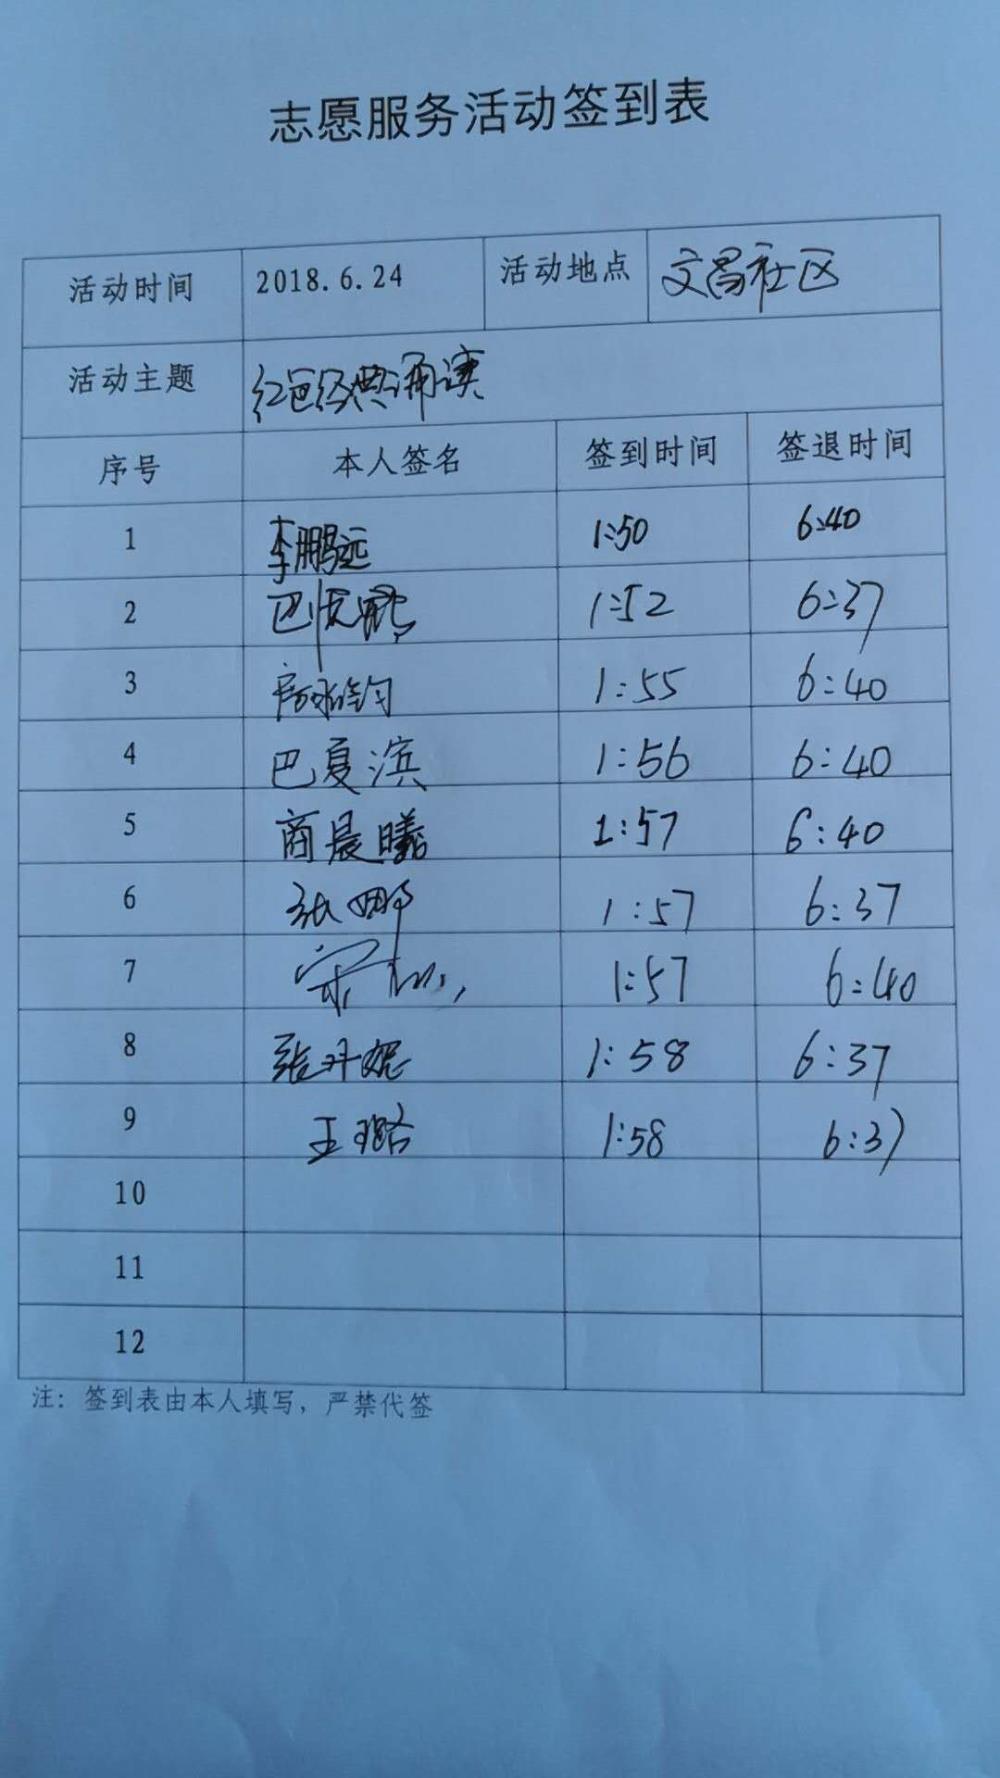 志愿服务活动签到表
活动时间 2018.6.24 活动地点 文昌社区
活动主题 红色经典诵读
序号 本人签名 签到时间 签退时间
1 李鹏远 1:50 6:40
2 巴 1:52 6:37
3 1:55 6:40
4 巴夏滨 1:56 6:40
5 商晨曦 1:57 6:40
6 张娜 1:57 6:37
7 宋 1:57 6:40
8 张丹妮 1:58 6:37
9 王璐 1:58 6:37
10
11
12
注：签到表由本人填写，严禁代签